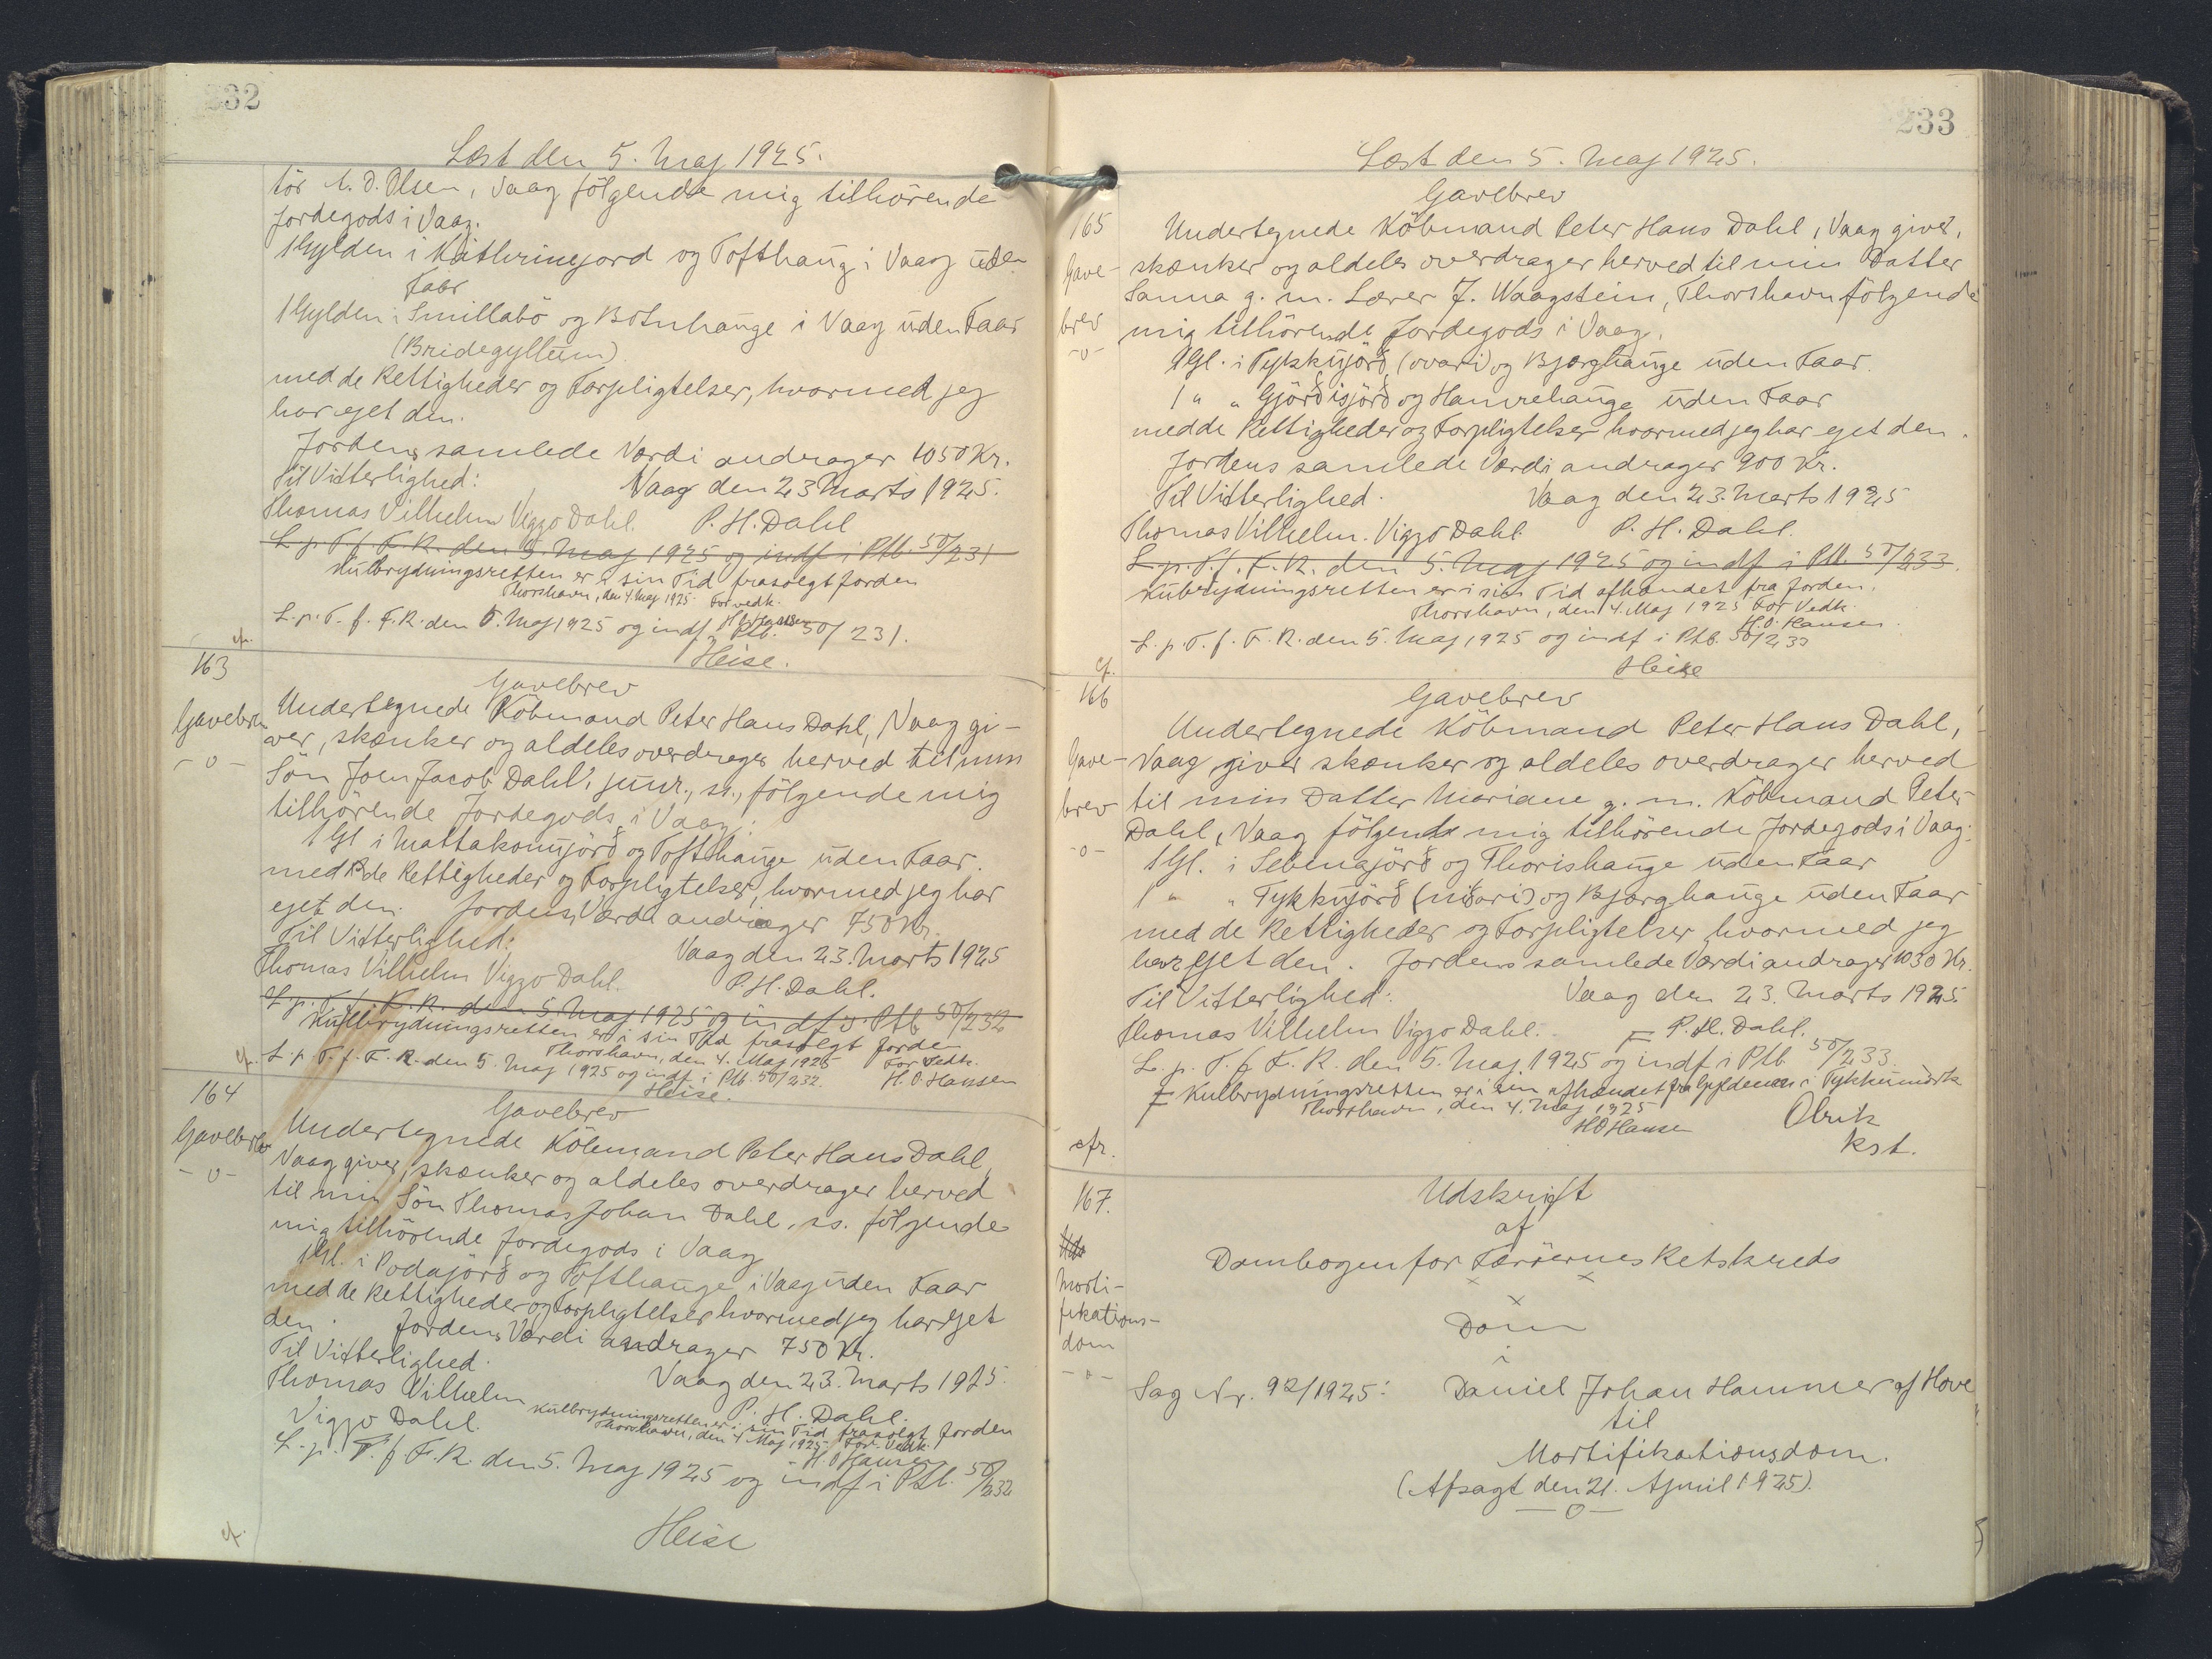 232
Læst den 5. Maj 1925.
tör A. D. Olsen, Vaag fölgende mig tilhörende
Jordegods i Vaag.
1 Gylden i Kathrinejord og Tofthaug i Vaag uden
Faar
1 Gylden i Smillabö og Botnhauge i Vaag uden Faar
(Bridegyllum)
med de Rettigheder og Forpligtelser, hvormed jeg
har ejet den.
Jordens samlede Værdi andrager 1050 Kr.
Til Vitterlighed: Vaag den 23 Marts 1925.
Thomas Vilhelm Viggo Dahl. P. H. Dahl
L. p. T. f. F. R. den 5. Maj 1925 og indf i Ptb. 50/231
Kulbrydningsretten er i sin Tid frasolgt Jorden
Thorshavn, den 4. Maj 1925. For vedk.
H. O. Hansen
L. p. T. f. F. R. den 5. Maj 1925 og indf. i Ptb. 50/231.
cfr.
Heise.
163
Gavebrev
-o-
Gavebrev
Undertegnede Köbmand Peter Hans Dahl, Vaag gi-
ver, skænker og aldeles overdrager herved til min
Sön Joen Jacob Dahl, junr., ss., fölgende mig
tilhörende Jordegods i Vaag:
1 Gl i Mattakonujörð og Tofthauge uden Faar.
med de Rettigheder og Forpligtelser, hvormed jeg har
ejet den. Jordens Værdi andrager 750 Kr.
Til Vitterlighed: Vaag den 23. Marts 1925
Thomas Vilhelm Viggo Dahl. P. H. Dahl.
L. p. T. f. F. R. den 5. Maj 1925 og indf i Ptb 50/232
Kulbrydningsretten er i sin Tid frasolgt Jorden
Thorshavn, den 4. Maj 1925 For Vedk.
cfr. L. p. T. f. F. R. den 5. Maj 1925 og indf. i Ptb. 50/232. H. O. Hansen
Heise.
164
Gavebrev
-o-
Gavebrev
Undertegnede Köbmand Peter Hans Dahl,
Vaag giver, skænker og aldeles overdrager herved
til min Sön Thomas Johan Dahl, ss. fölgende
mig tilhörende Jordegods i Vaag
1 Gl. i Podajörð og Tofthauge i Vaag uden Faar
med de Rettigheder og Forpligtelser hvormed jeg har ejet
den. Jordens Værdi andrager 750 Kr.
Til Vitterlighed. Vaag den 23. Marts 1925.
Thomas Vilhelm P. H. Dahl.
Viggo Dahl. Kulbrydningsretten er i sin Tid frasolgt Jorden
Thorshavn, den 4 Maj 1925 For Vedk.
H. O Hansen
L. p. T. f F. R. den 5. Maj 1925 og indf i Ptb. 50/232
cfr.
Heise
233
Læst den 5. Maj 1925.
165
Gave-
brev
-o-
Gavebrev
Undertegnede Köbmand Peter Hans Dahl, Vaag giver,
skænker og aldeles overdrager herved til min Datter
Sanna g. m. Lærer J. Waagstein, Thorshavn fölgende
mig tilhörende Jordegods i Vaag.
1 Gl. i Tykkujörð (ovari) og Bjorghauge uden Faar.
1 " " Gjörðisjörð og Hamrehauge uden Faar
med de Rettigheder og Forpligtelser hvormed jeg har ejet den.
Jordens samlede Værdi andrager 900 Kr.
Til Vitterlighed. Vaag den 23. Marts 1925
Thomas Vilhelm. Viggo Dahl. P. H. Dahl.
L. p. T. f. F. R. den 5. Maj 1925 og indf i Ptb. 50/233.
Kulbrydningsretten er i sin Tid afhændet fra Jorden.
Thorshavn, den 4. Maj 1925 For Vedk.
H. O. Hansen.
L. p. T. f. F. R. den 5. Maj 1925 og indf i Ptb. 50/233
cfr.
Heise
166
Gave-
brev
-o-
Gavebrev
Undertegnede Köbmand Peter Hans Dahl,
Vaag giver skænker og aldeles overdrager herved
til min Datter Mariane g. m. Köbmand Peter
Dahl, Vaag fölgende mig tilhörende Jordegods i Vaag:
1 Gl. i Sebinajörð og Thorishauge uden Faar
1 " " Tykkujörð (niðari) og Bjorghauge uden Faar
med de Rettigheder og Forpligtelser hvormed jeg
har ejet den. Jordens samlede Værdi andrager 1030 Kr.
Til Vitterlighed: Vaag den 23. Marts 1925
Thomas Vilhelm Viggo Dahl. P. H. Dahl.
L. p. T. f F. R. den 5. Maj 1925 og indf i Ptb 50/233.
Kulbrydningsretten er i sin afhændet fra Gyldenen i
Thorshavn, den 4. Maj 1925
H O Hansen
Olrik
kst.
cfr.
167.
Morti-
fikations-
dom
-o-
Udskrift
af
Dombogen for Færöernes Retskreds
x x
x
Dom
i
Sag Nr. 92/1925: Daniel Johan Hammer af Hove
til
Mortifikationsdom.
(Afsagt den 21. April 1925).
-o-